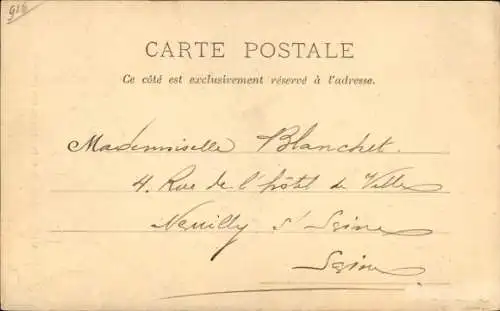 916
CARTE POSTALE
Ce côté est exclusivement réservé à l'adresse.
Mademoiselle Blanchet.
4. Rue de l'hôtl de Ville
Neuilly s/ Seine
Seine